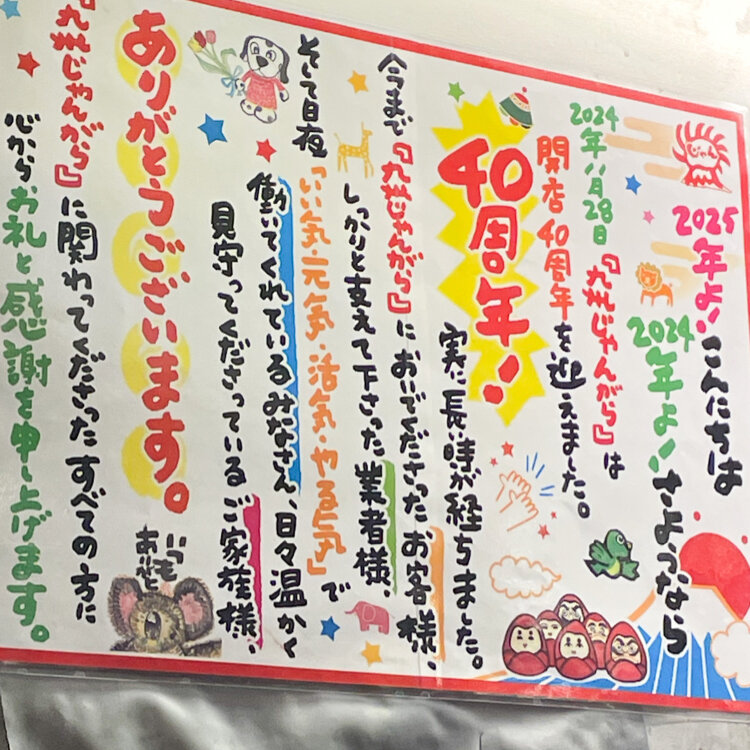 2025年よ!こんにちは
2024年よ!さようなら
2024年11月28日
『九州じゃんがら』は
開店40周年を迎えました。
40周年!
実に長い時が経ちました。
今まで『九州じゃんがら』においでくださったお客様、
しっかりと支えて下さった業者様、
そして日夜『いい気・元気・活気・やる気』で
働いてくれているみなさん、日々温かく
見守ってくださっているご家族様、
ありがとうございます。
『九州じゃんがら』に関わってくださったすべての方に
心からお礼と感謝を申し上げます。
じゃん
いつも